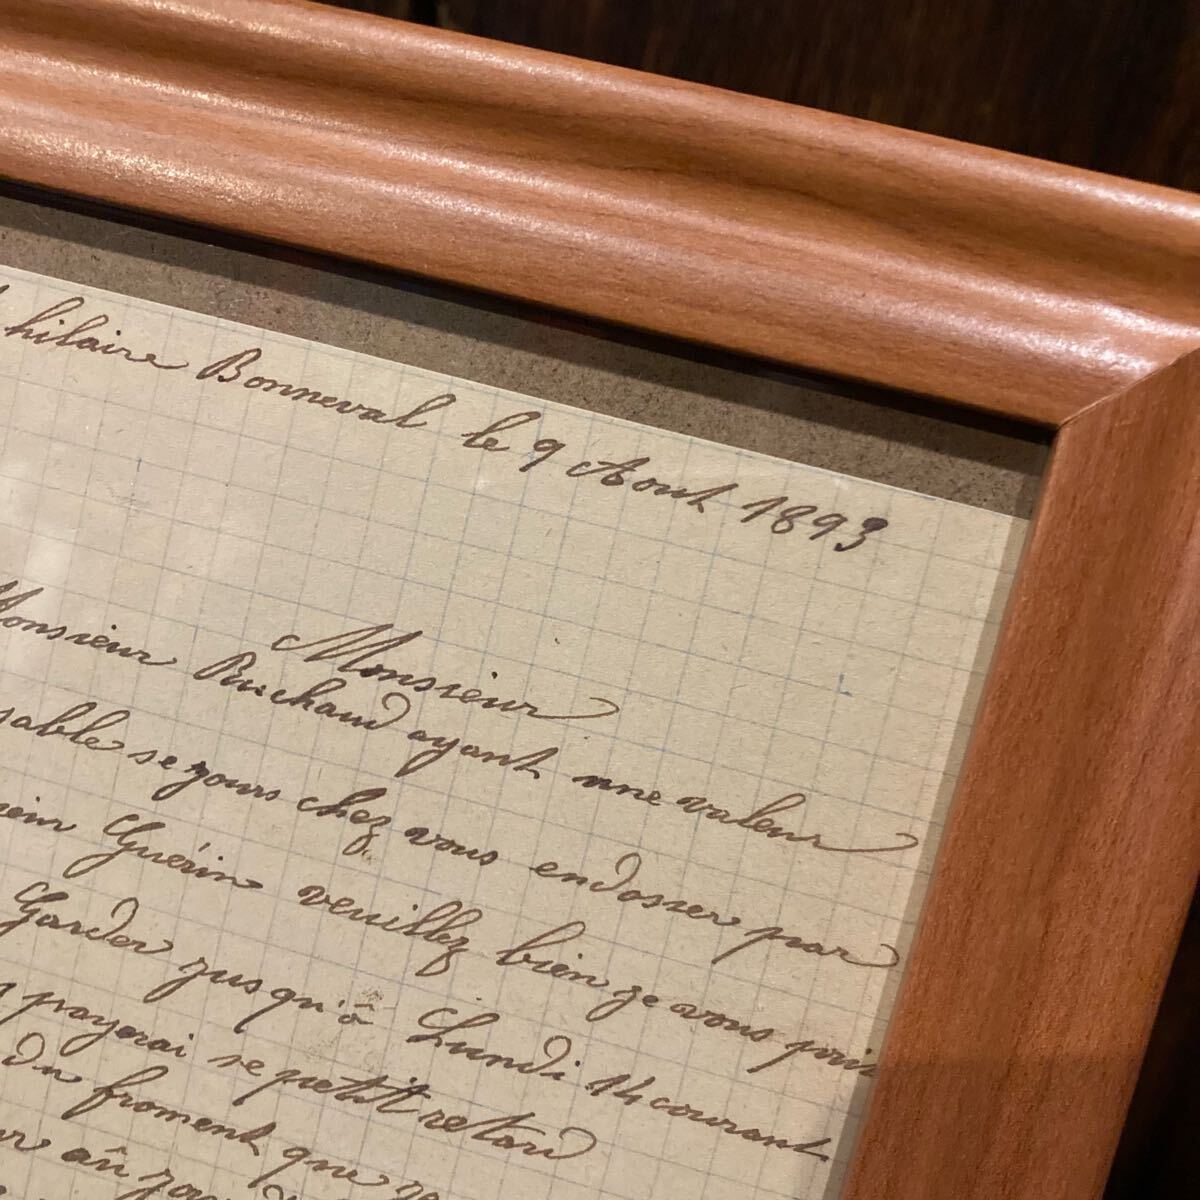 hilaire Bonneval le 9 Aout 1893
Monsieur
Monsieur Ruchaud ayant une valeur
sable se jours chez vous endosser par
Guérin veuillez bien je vous prie
Garder jusqu'â Lundi 14 courant
payerai se petit retard
du froment que je